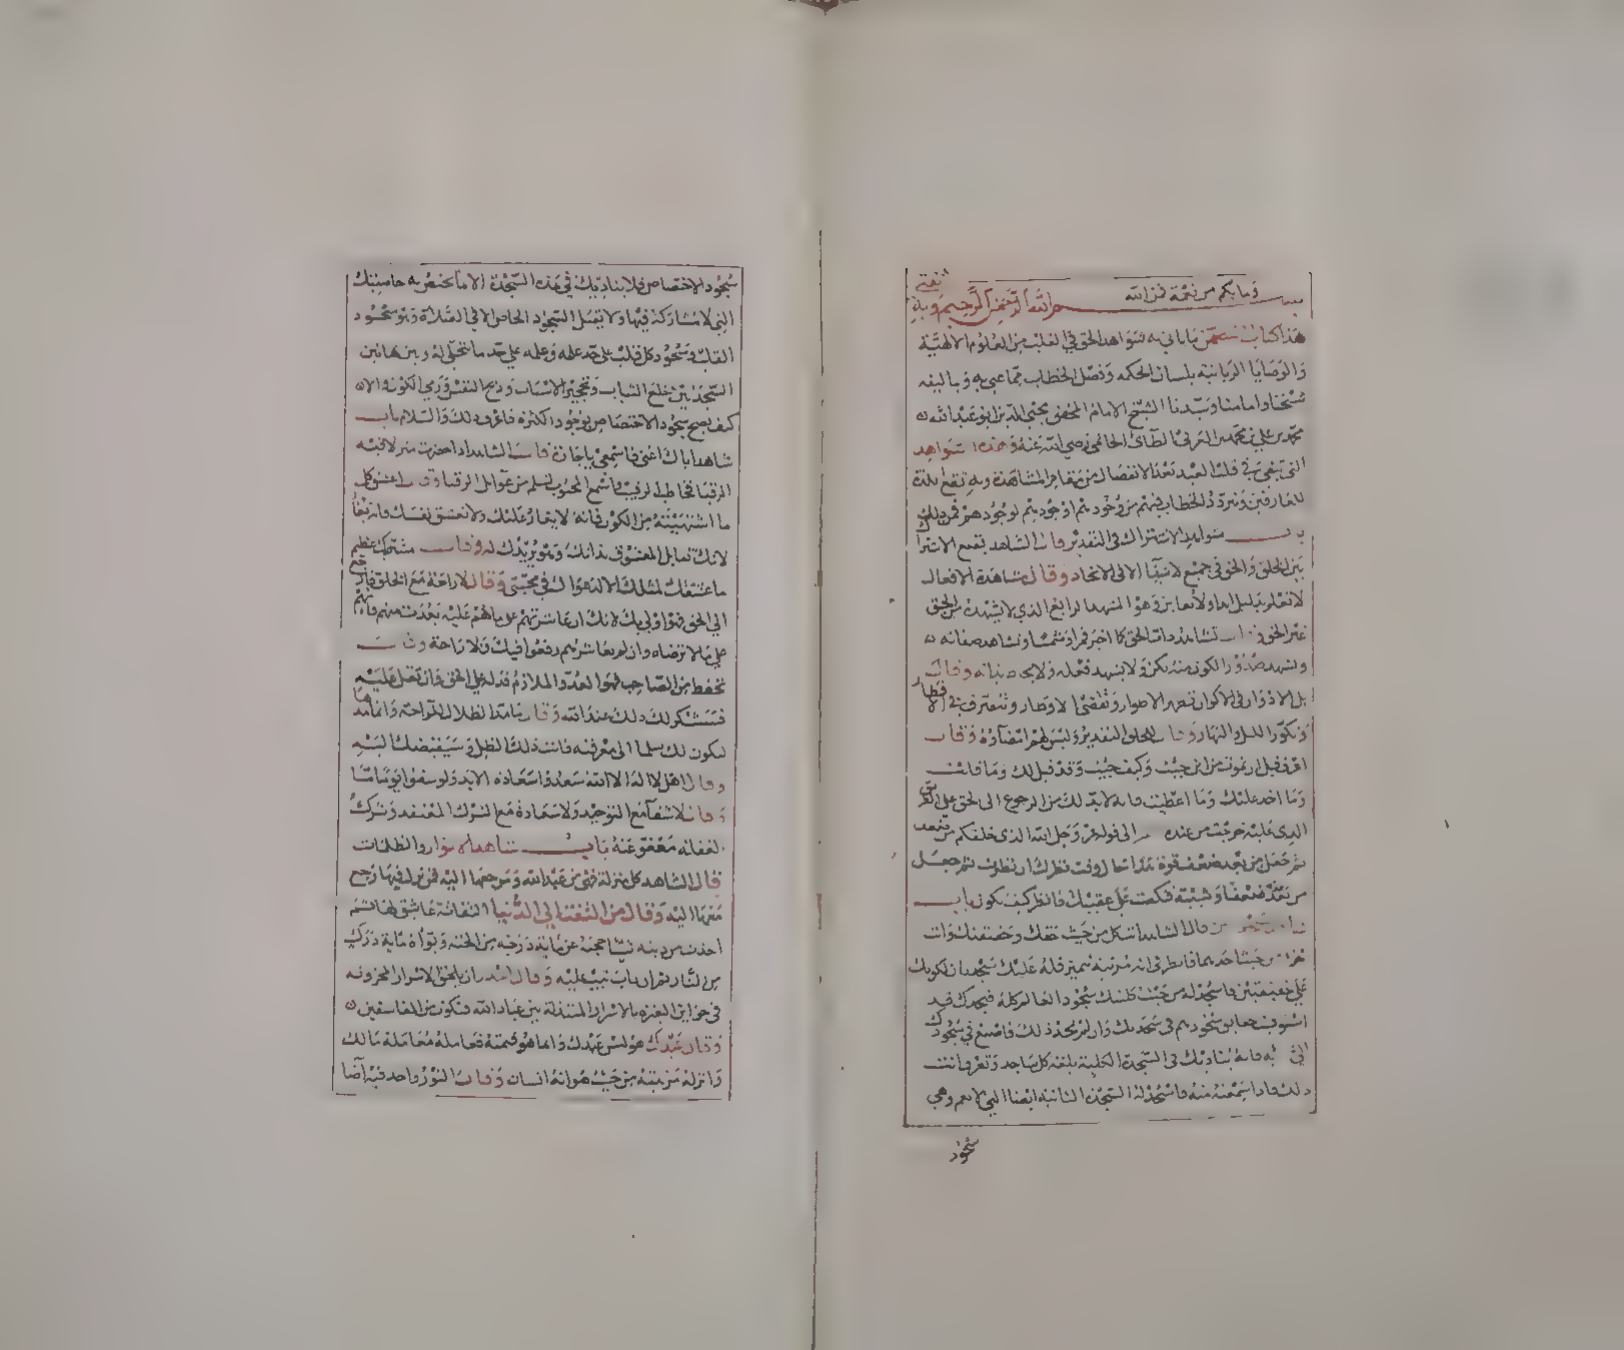 وما بكم من نعمة فمن الله
بسم الله الرحمن الرحيم وبه ثقتي
هذا كتاب يتضمن ما ياتي به شواهد الحق في القلب من العلوم الالهية
والوصايا الربانية بلسان الحكمة وفصل الخطاب مما عني به وبتاليفه
شيخنا وامامنا وسيدنا الشيخ الامام المحقق محيي الدين ابو عبد الله
محمد بن علي بن محمد بن العربي الطائي الحاتمي رضي الله عنه وهذه الشواهد
التي تبقي في قلب العبد بعد الانفصال من مقام المشاهدة وبه تقع لذة
للعارفين وترد الخطاب فيهم من وجودهم او جودهم لوجودهم فمن ذلك
باب شواهد الاشتراك في التقدير قال الشاهد يقع الاشتراك
بين الخلق والحق في جميع الاشيا الا في الاتحاد وقال مشاهدة الافعال
لا تعلم بدليل ابدا ولا تعاين وهو المشهد الرابع الذي لا يشهده من الحق
غير الحق وقال تشاهد ذات الحق كما اخبر قمرا وشمسا وتشاهد صفاته
وتشهد صدور الكون منه بكن ولا تشهد فعله ولا يجاد بذاته وقال
بل الادوار في الاكوار تصهر الاطوار وتقضي الاوطار وتتصرف في الاقطار
وتكور الليل والنهار وقال للخلق التقدير وليس لهم امضاؤه وقال
اعرف قبل ان تموت من اين جيت وكيف جيت وقد قيل لك وما قلت
وما اخذ عليك وما اعطيت فانه لا بد لك من الرجوع الى الحق على الطريق
الذي عليه خرجت من عنده الى قوله عز وجل الله الذي خلقكم من ضعف
ثم جعل من بعد ضعف قوة هذا حال وقت نظرك ان نظرت ثم جعل
من بعد قوة ضعفا وشيبة فنكصت على عقبيك فانظر كيف تكون باب
قال الشاهد انت كل من حيث حقك وحقيقتك وانت
علي حقيقتين فاسجد له من حيث كليتك سجود العالم كله فيجدك قد
استوفيت حقايق سجودهم في سجدتك وان لم تجد ذلك فاصنع في سجودك
فانه يناديك في السجدة الكلية بلغة كل ساجد وتعرف انت
ذلك فاذا سمعته منه فاسجد له السجدة الثانية ايضا التي لا تعم وهي
سجود
سجود الاختصاص فلا يناديك في هذه السجدة الا ما تختص به خاصيتك
التي لا مشاركة فيها ولا يقبل السجود الخاص الا في الصلاة وهو سجود
القلب وسجود كل قلب على حد علمه وعلمه على حد ما تجلى له وبين هاتين
السجدتين خلع الثياب وتحجير الاسباب وذبح النفس ورمي الكون والا
كيف يصح سجود الاختصاص بوجود الكثرة فاعرف ذلك والسلام باب
شاهد اياك اعني فاسمعي يا جارة قال الشاهد اذا حضرت سر لا فيه
الرقبا فخاطب الرقيب واسمع المحبوب تسلم من غوايل الرقبا وقال اعشق كل
ما اشتهيته من الكون فانه لا يغار عليك ولا تعشق نفسك فانه يغار
لانك تقابل المعشوق بذاتك وهو يريدك له وقال مشتهاك عظيم
ما عشقك لمثلك الا لدعواك في محبتي وقال لا راحة مع الخلق فارجع
الى الحق فهو اولى بك لانك ان عاشرتهم على ما هم عليه بعدت منهم فانهم
على ما لا ترضاه وان لم تعاشرهم وقعوا فيك فلا راحة وقال
تحفظ من الصاحب فهو العدو الملازم فدله على الحق فان ثقل عليه
فستشكر لك ذلك عند الله وقال ما مد الظلال للراحة وانما مدها
لتكون لك سلما الى معرفته فانت ذلك الظل وسيقبضك اليه
وقال اهل لا اله الا الله سعدوا سعادة الابد ولو سقوا يوما ما
وقال لا شقا مع التوحيد ولا سعادة مع الشرك المعتقد وترك
لغفلته معفو عنه باب شاهد الانوار والظلمات
قال الشاهد كل منزلة فهي من عند الله ومرجعها اليه فمن نزل فيها رجع
معها اليه وقال من التفت الى الدنيا التفاتة عاشق لها ثم
اخذت من دينه نبتا حجبته عن ماية درجة من الجنة وبواه ماية درك
من النار ثم ان تاب تيب عليه وقال احذر ان يلحق الاسرار المخزونة
في خزاين الغيرة بالاسرار المبتذلة بين عباد الله فتكون من الفاسقين
وقال عبدك هو ليس عبدك وانما هو قيمته فعامله معاملة مالك
وانزله منزلته من حيث هو انه انسان وقال النور واحد فيه اضا